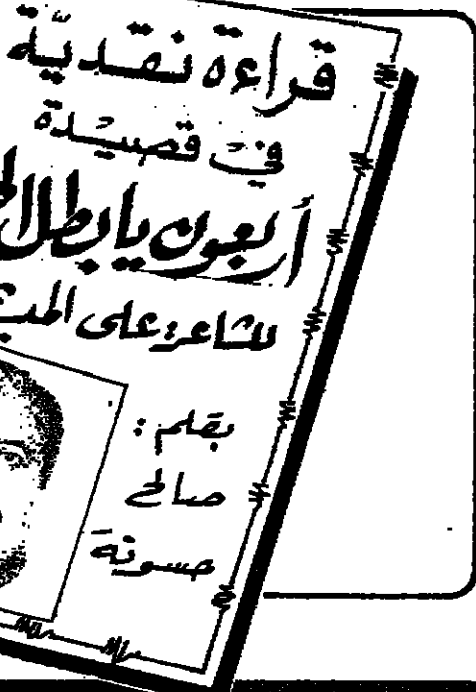 قراءة نقديّة
في قصيدة
أربعون يا بطل
للشاعر: على
بقلم:
صالح
حسونة